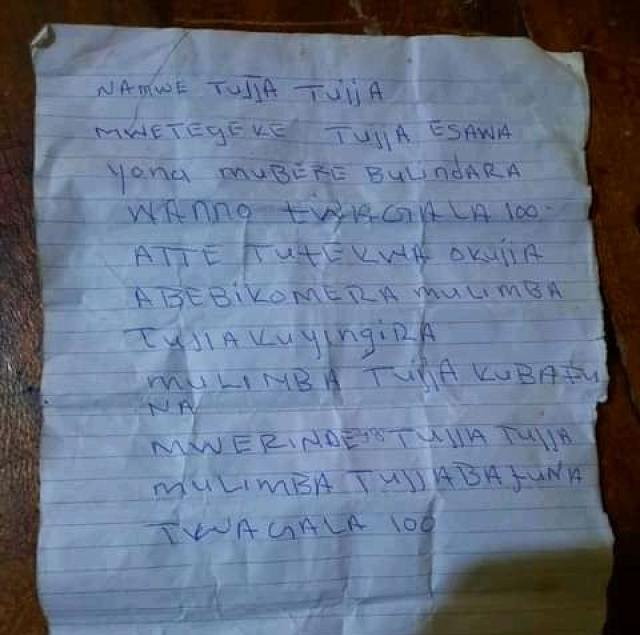 NAMWE TUJJA TUJJA
MWETEGEKE TUJJA ESAWA
YONA MUBEBE BULINDARA
WANNO TWAGALA 100.
ATTE TUTEKWA OKUJJA
ABEBIKOMERA MULIMBA
TUJJA KUYINGIRA
MULIMBA TUJJA KUBAFU
NA
MWERINDE TUJJA TUJJA
MULIMBA TUJJABAFUNA
TWAGALA 100